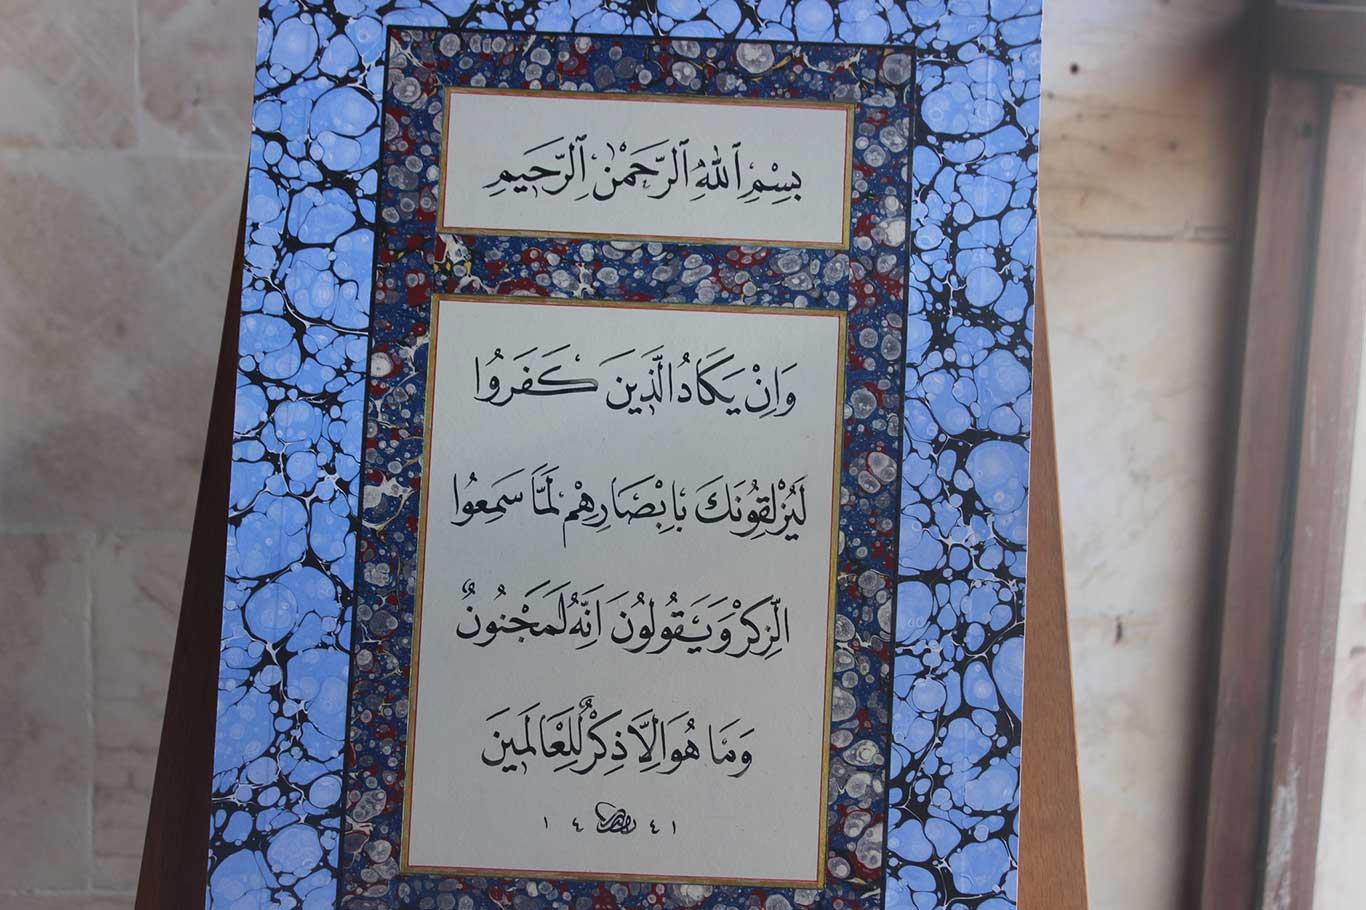 بِسْمِ ٱللّٰهِ ٱلرَّحْمٰنِ ٱلرَّحِيمِ
وَاِنْ يَكَادُ الَّذِينَ كَفَرُوا
لَيُزْلِقُونَكَ بِاَبْصَارِهِمْ لَمَّا سَمِعُوا
الذِّكْرَ وَيَقُولُونَ اِنَّهُ لَمَجْنُونٌ
وَمَا هُوَ اِلَّا ذِكْرٌ لِلْعَالَمِينَ
١٤ ٤١